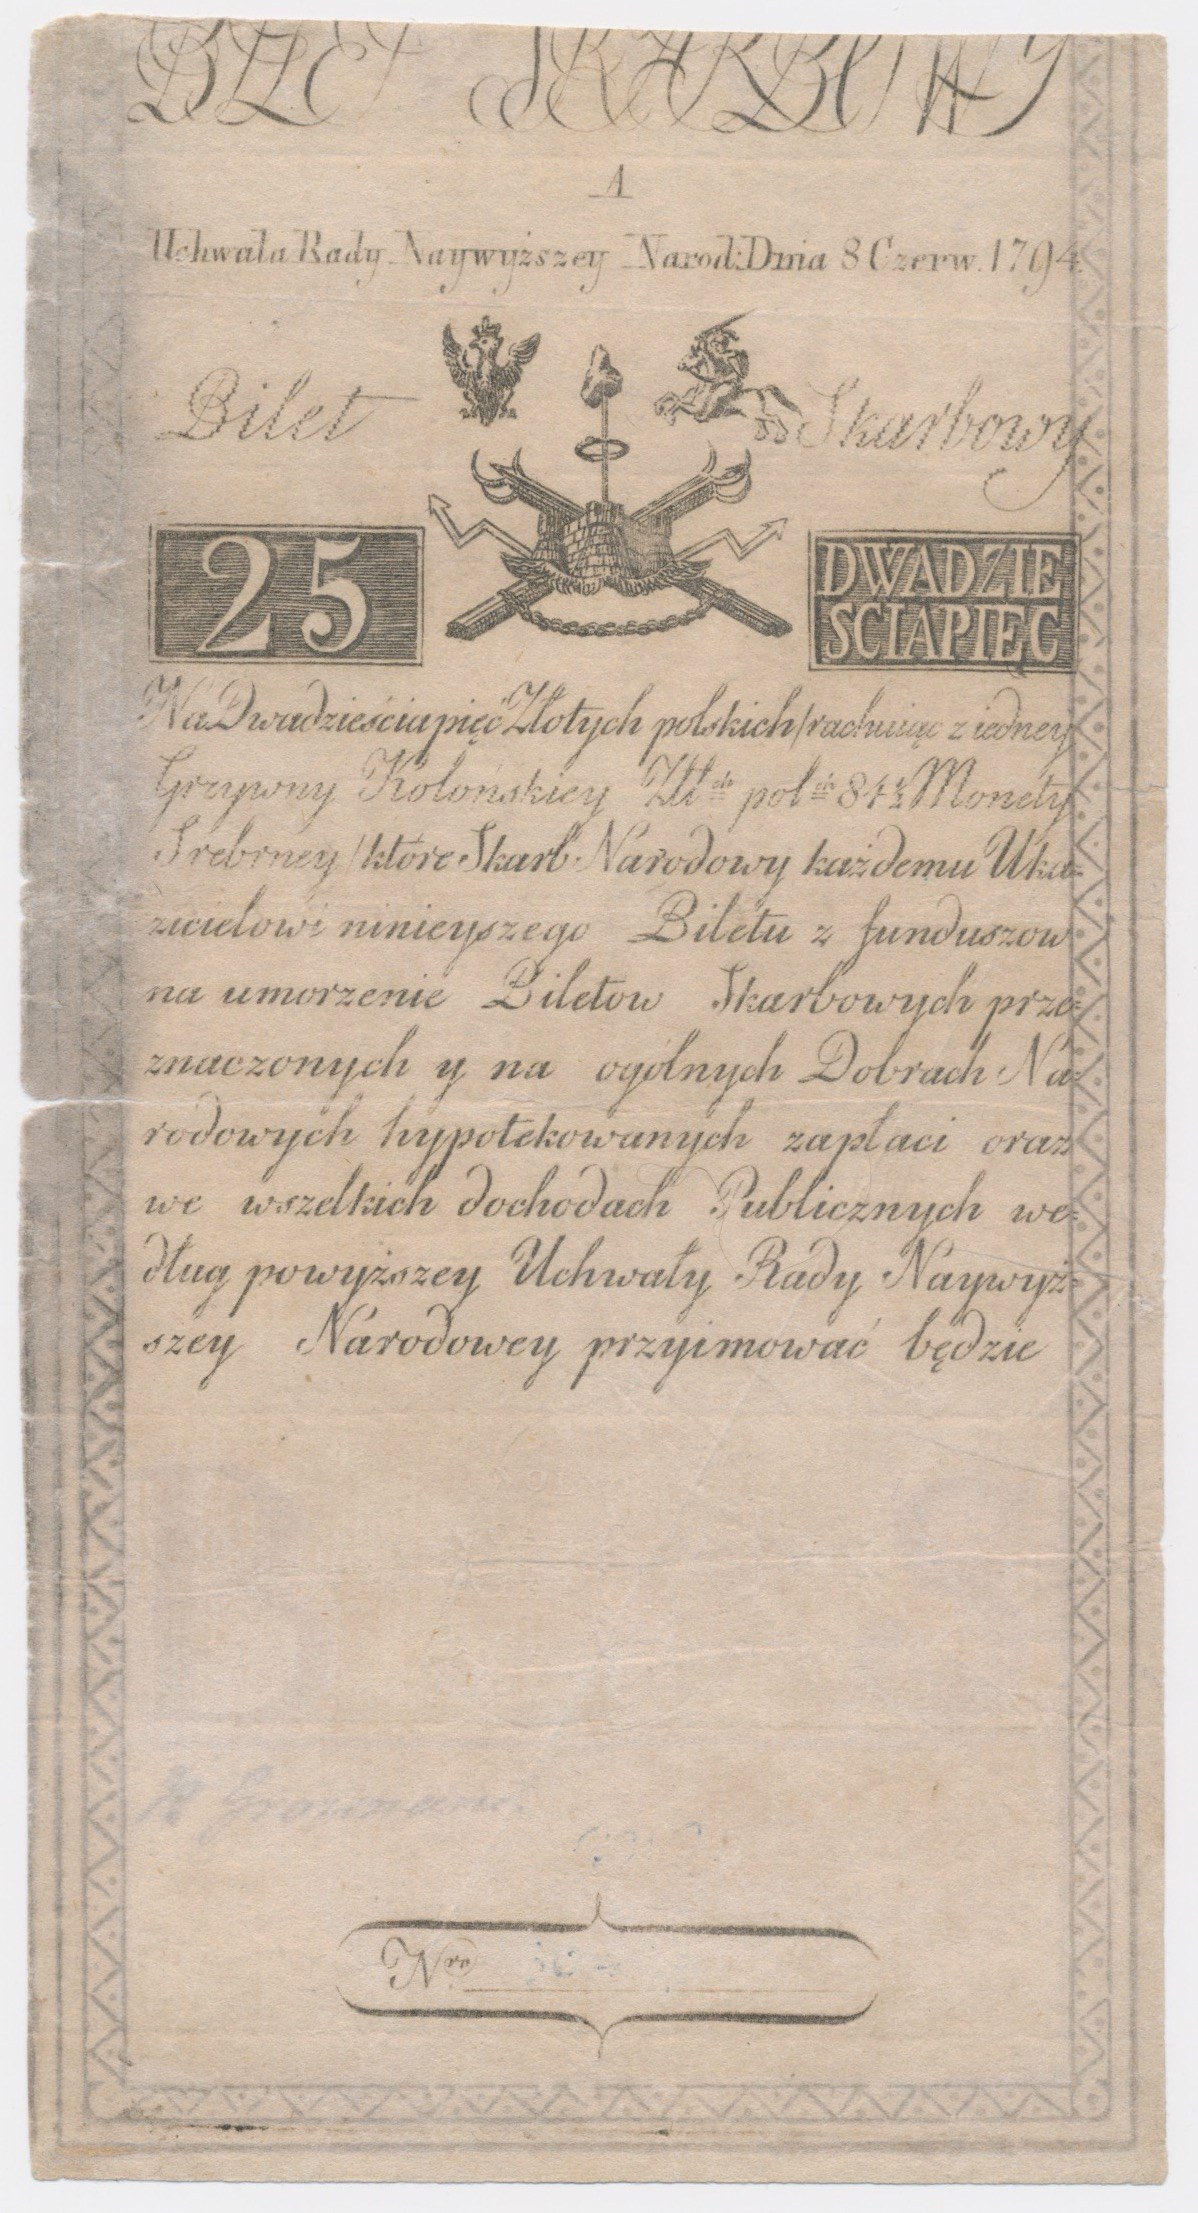 BILET SKARBOWY
A
Uchwała Rady Naywyższey Narod: Dnia 8 Czerw. 1794.
Bilet Skarbowy
25
DWADZIE
SCIAPIĘC
Na Dwadzieściapięć Złotych polskich / rachuiąc z iedney
Grzywny Kolońskiey Złł^ch pol^ch 84½ Monety
Srebrney / które Skarb Narodowy każdemu Uka=
zicielowi ninieyszego Biletu z funduszow
na umorzenie Biletow Skarbowych prze=
znaczonych y na ogólnych Dobrach Na=
rodowych hypotekowanych zapłaci oraz
we wszelkich dochodach Publicznych we=
dług powyższey Uchwały Rady Naywyż=
szey Narodowey przyimować będzie
N^ro